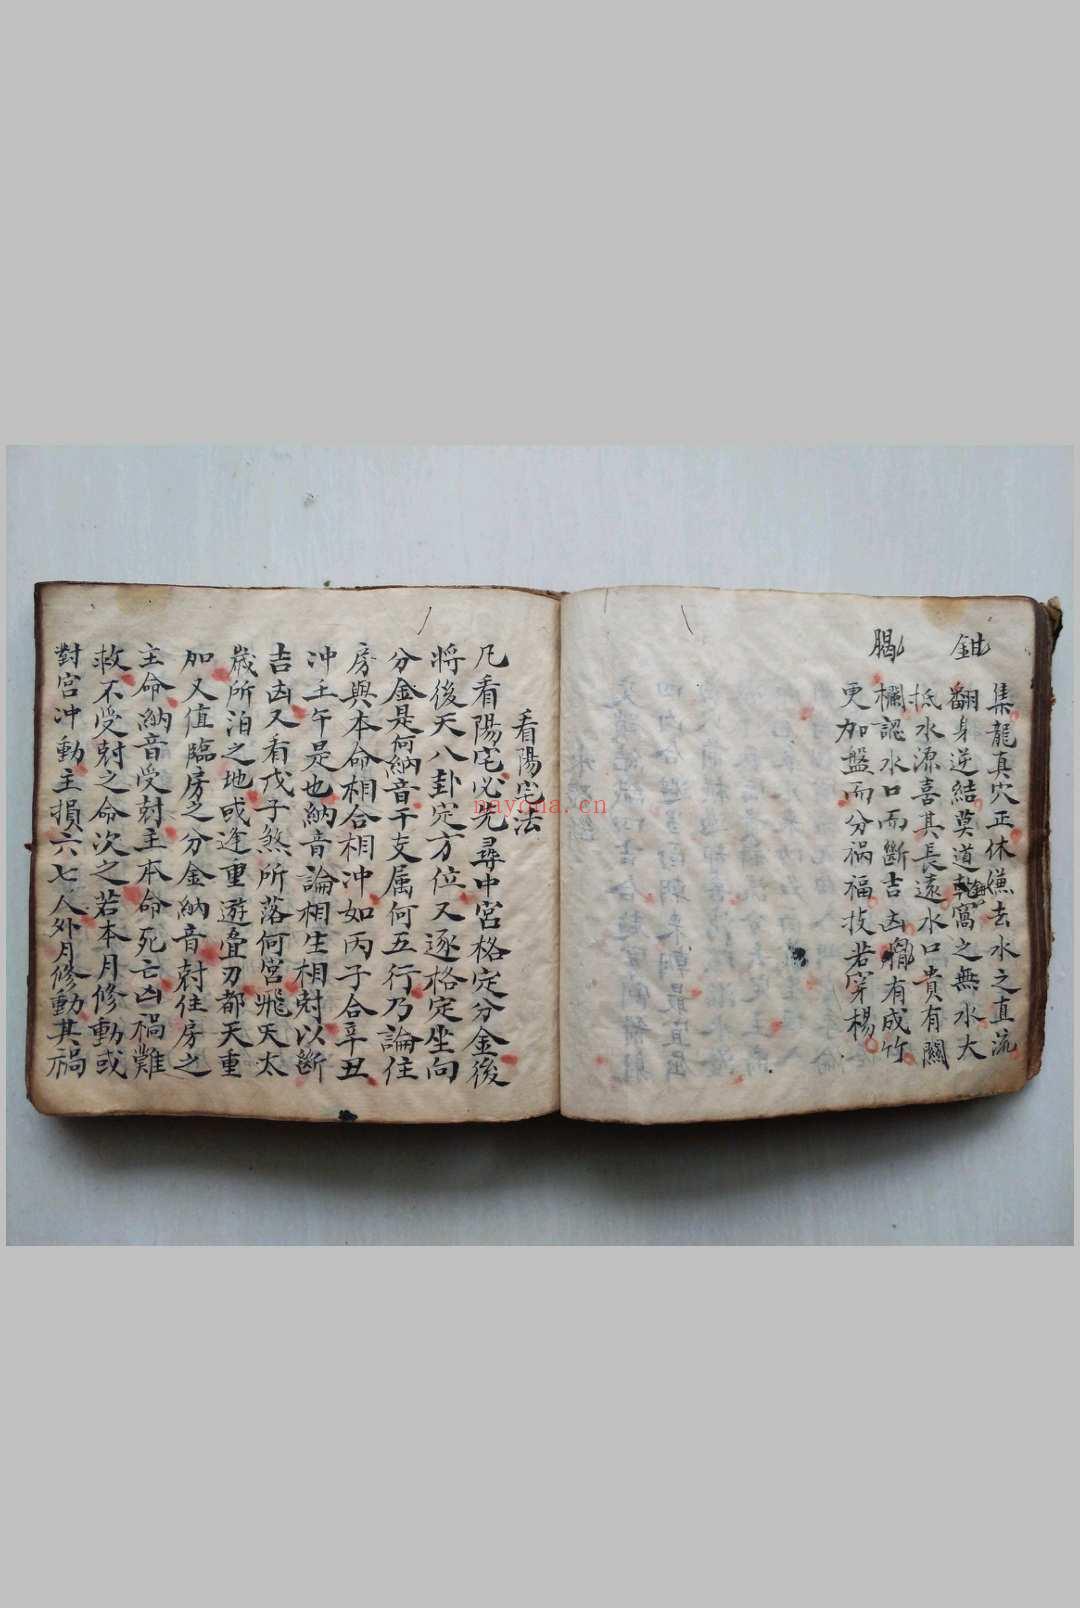 集龍真穴正休嫌去水之直流
翻身逆結莫道乾窩之無水大
抵水源喜其長遠水口貴有關
欄認水口而斷吉凶 有成竹
更加盤而分禍福技若穿楊
鉗
看陽宅法
凡看陽宅必先尋中宮格定分金後
將後天八卦定方位又逐格定坐向
分金是何納音干支属何五行乃論住
房與本命相合相冲如丙子合辛丑
冲壬午是也納音論相生相尅以斷
吉凶又看戊子煞所落何宮飛天太
歲所泊之地或逢重遊疊刃都天重
加又值臨房之分金納音尅住房之
主命納音受尅主本命死亡凶禍難
救不受尅之命次之若本月修動或
對宮冲動主損六七人外月修動其禍
nayona.cn